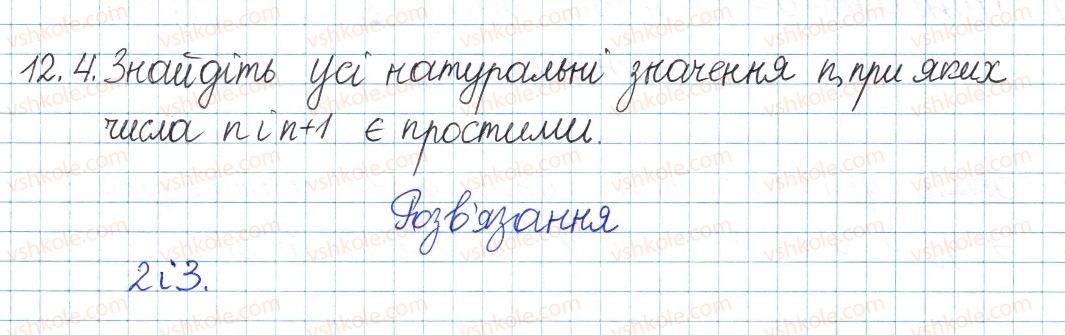 12.4. Знайдіть усі натуральні значення n, при яких
числа n і n+1 є простими.
Розв'язання
2 і 3.